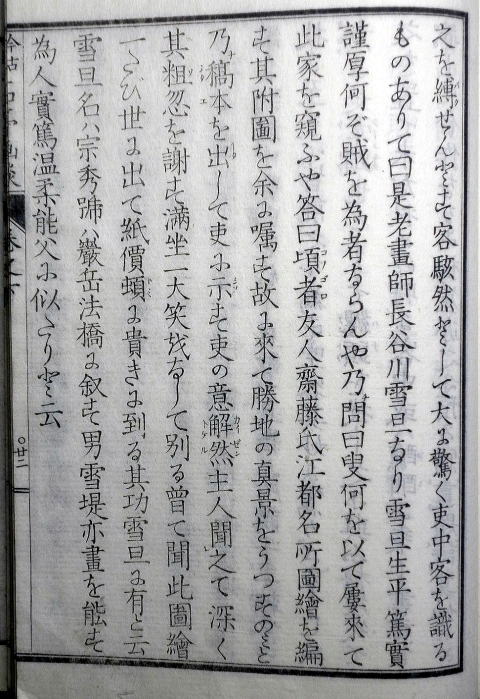 之を縛せんとす客駭然として大に驚く吏中客を識る
ものありて曰是老畫師長谷川雪旦なり雪旦生平篤實
謹厚何ぞ賊を為者ならんや乃問曰叟何を以て屢来て
此家を窺ふや答曰頃者友人齋藤氏江都名所圖繪を編
す其附圖を余に嘱す故に來て勝地の真景をうつすのミと
乃稿本を出して吏に示す吏の意解然主人聞之て深く
其粗忽を謝す満坐一大笑をなして別る曾て聞此圖繪
一たび世に出て紙價頓に貴きに到る其功雪旦に有と云
雪旦名ハ宗秀號ハ巖岳法橋に叙す男雪堤亦畫を能す
為人實篤温柔能父に似たりと云
巻之下
○廿二